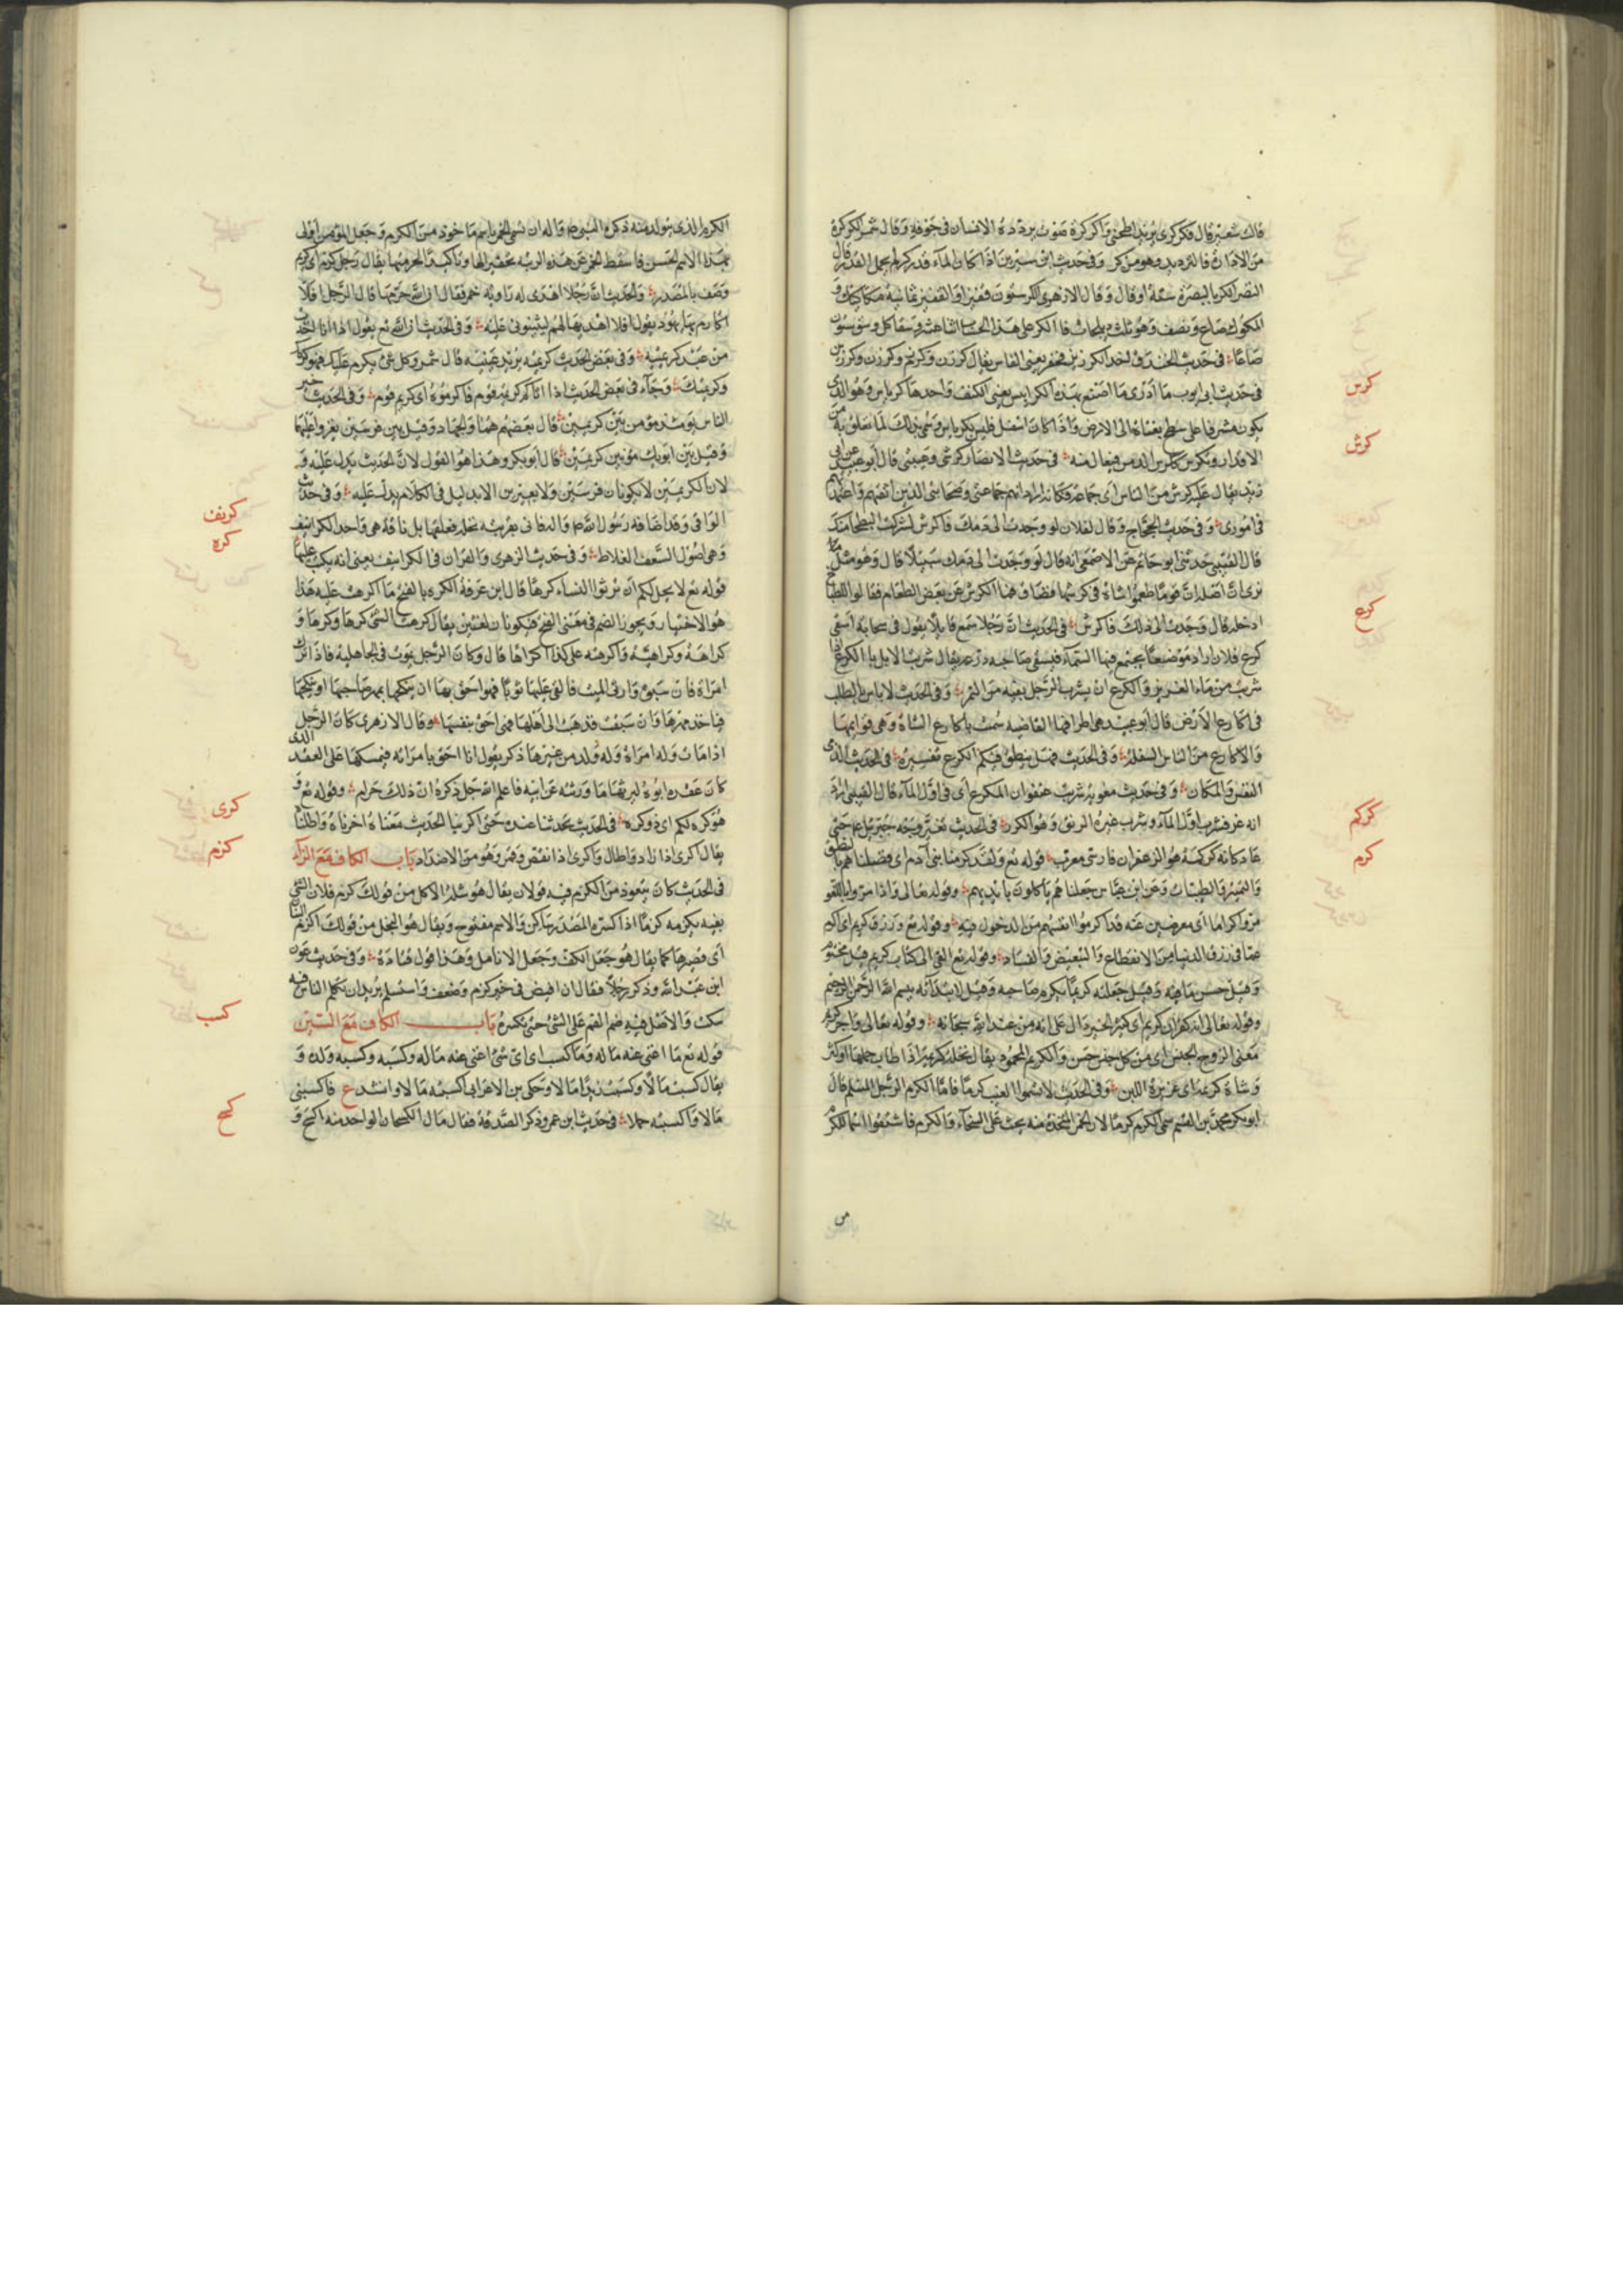 قالت شعير قال فكركرى يريد اطحنى والكركرة صوت يردده الانسان فى جوفه وقال شمر الكركرة
من الادارة فالترديد وهو من كر وفى حديث ابن سيرين اذا كان الماء قدر كر لم يحمل القذر قال
النضر الكر بالبصرة ستة اوقار وقال الازهرى الكر ستون قفيزا والقفيز ثمانية مكاكيك و
المكوك صاع ونصف وهو ثلث كيلجات فالكر على هذا الحساب اثنا عشر وسقا كل وسق ستون
صاعا فى حديث الخندق فاخذ الكرزين فحفر يعنى الفاس يقال كرزن وكرزم وكرزن وكرزين
كرس
فى حديث ابى ايوب ما ادرى ما اصنع بهذه الكراييس يعنى الكنف واحدها كرياس وهو الذى
يكون مشرفا على سطح بقناة الى الارض واذا كان اسفل فليس بكرياس وسمى بذلك لما تعلق به من
كرش
الاقذار وتكرس ككرس الدمن فيعال منه فى حديث الانصار كرشى وعيبتى قال ابو عبيد عن ابى
زيد يقال عليه كرش من الناس اى جماعة فكانه اراد انهم جماعتى وصحابتى الذين اثق بهم واعتمد
فى امورى وفى حديث الحجاج وقال لفلان لو وجدت الى دمك فاكرش لشربت البطحاء منك
قال القتيبى حدثنى ابو حاتم عن الاصمعى انه قال لو وجدت الى دمك سبيلا قال وهو مثل
نرى ان اصله ان قوما طبخوا شاة فى كرشها فضاق فم الكرش عن بعض الطعام فقالوا للطباخ
كرع
ادخله قال وجدت الى ذلك فاكرش فى الحديث ان رجلا سمع قائلا يقول فى سحابة اسقى
كرع فلان اراد موضعا يجتمع فيها السماء فيسقى صاحبه زرعه يقال شربت الابل بالكرع اذا
شربت من ماء الغدير والكرع ان يشرب الرجل بفيه من النهر وفى الحديث لا باس بالطلب
فى اكارع الارض قال ابو عبيد هى اطرافها القاصية شبهت باكارع الشاة وهى قوائمها
والاكارع من الناس السفلة وفى الحديث فهل ينطق فيكم الكرع تفسيره فى الحديث الدنى
النفس والمكان وفى حديث معوية شربت عنفوان المكرع اى فى اول الماء قال القتيبى اراد
كركم
انه عز فشرب اول الماء وشرب غيره الرنق وهو الكدر فى الحديث تغير وجه جبرئيل عم حتى
كرم
عاد كانه كركمة هو الزعفران فارسى معرب قوله تع ولقد كرمنا بنى آدم اى فضلناهم بالنطق
والتمييز والطيبات وعن ابن عباس جعلناهم ياكلون بايديهم وقوله تعالى واذا مروا باللغو
مروا كراما اى معرضين عنه قد اكرموا انفسهم من الدخول فيه وقوله تع ورزق كريم اى اكرم
مما فى رزق الدنيا من الانقطاع والتبعيض والفساد وقوله تع القى الى كتاب كريم قيل مختوم
وقيل حسن ما فيه وقيل جعلته كريما لكرم صاحبه وقيل لابتدائه بسم الله الرحمن الرحيم
وقوله تعالى انه لقران كريم اى كثير الخير دال على انه من عند الله سبحانه وقوله تعالى واجر كريم
معنى الزوج الجنس اى من كل جنس حسن والكريم المحمود يقال نخلة كريمة اذا طاب حملها او كثر
وشاة كريمة اى غزيرة اللبن وفى الحديث لا تسموا العنب كرما فانما الكرم الرجل المسلم قال
ابو بكر محمد بن القسم سمى الكرم كرما لان الخمر المتخذة منه يحث على السخاء والكرم فاشتقوا اسما للكرم
من
الكرم الذى يتولد منه ذكره النبى ص واله ان تسمى الخمر باسم ماخوذ من الكرم وجعل المؤمن اولى
بهذا الاسم الحسن فاسقط الخمر عن هذه الرتبه تحقيرا لها وتاكيدا لحرمتها يقال رجل كرم اى كريم
وصف بالمصدر والحديث ان رجلا اهدى له راوية خمر فقال ان الله حرمها قال الرجل افلا
اكارم بها يهود يقول افلا اهديها لهم ليثيبونى عليه وفى الحديث ان الله تع يقول اذا انا اخذت
من عبدى كريمتيه وفى بعض الحديث كريمته يريد عينيه قال شمر وكل شئ يكرم عليك فهو كريمك
وكريمتك وجاء فى بعض الحديث اذا اتاكم كريمة قوم فاكرموه اى كريم قوم وفى الحديث خير
الناس يومئذ مؤمن بين كريمين قال بعضهم هما الحج والجهاد وقيل بين فرسين يغزو عليهما
وقيل بين ابوين مؤمنين كريمين قال ابو بكر وهذا هو القول لان الحديث يدل عليه و
لان الكريمين لا يكونان فرسين ولا بعيرين الا بدليل فى الكلام يدل عليه وفى حديث
كرنف
الواقى وقد اضافه رسول الله ص واله فاتى بقربته نخلة فعلقها بكرنافة هى واحد الكرانيف
كره
وهى اصول السعف الغلاظ وفى حديث الزهرى والقران فى الكرانيف يعنى انه يكتب عليها
قوله تع لا يحل لكم ان ترثوا النساء كرها قال ابن عرفة الكره بالفتح ما اكرهت عليه هذا
هو الاختيار ويجوز الضم فى معنى الفتح فيكونان لغتين يقال كرهت الشئ كرها وكرها و
كراهة وكراهية واكرهته على كذا اكراها قال وكان الرجل يموت فى الجاهلية فاذا ترك
امراة فان سبق وارث الميت فالقى عليها ثوبا فهو احق بها ان ينكحها بمهر صاحبها او ينكحها
فياخذ مهرها وان سبقت فذهبت الى اهلها فهى احق بنفسها وقال الازهرى كان الرجل
اذا مات وله امراة وله ولد من غيرها ذكر يقول انا احق بامراته فيمسكها على العقد الذى
كان عقده ابوه ليرثها ما ورثه عن ابيه فاعلم الله جل ذكره ان ذلك حرام وقوله تع و
كرى
هو كره لكم اى ذو كره فى الحديث تحدثنا عنده حتى اكرينا الحديث معناه اخرناه واطلنا
كزم
يقال اكرى اذا زاد واطال واكرى اذا نقص وقصر وهو من الاضداد باب الكاف مع الزاء
فى الحديث كان يتعوذ من الكزم فيه قولان يقال هو شدة الاكل من قولك كزم فلان الشئ
بفيه يكزمه كزما اذا كسره المصدر ساكن والاسم مفتوح ويقال هو البخل من قولك اكزم البنان
اى قصيرها كما يقال هو جعد الكف وجعد الانامل وهذا قول قتادة وفى حديث عون
ابن عبد الله وذكر رجلا فقال ان افيض فى خير كزم وضعف واستسلم يريد ان تكلم الناس فيه
كسب
سكت والاصل فيه ضم الفم على الشئ حتى تكسره باب الكاف مع السين
قوله تع ما اغنى عنه ماله وما كسب اى اى شئ اغنى عنه ماله وكسبه وكسبه ولده و
يقال كسبت مالا وكسبت زيدا مالا وحكى بن الاعرابى اكسبته مالا وانشد ع فاكسبنى
كسح
مالا واكسبته حملا فى حديث ابن عمر وذكر الصدقة فقال مال الكسحان الواحد منه اكسح و